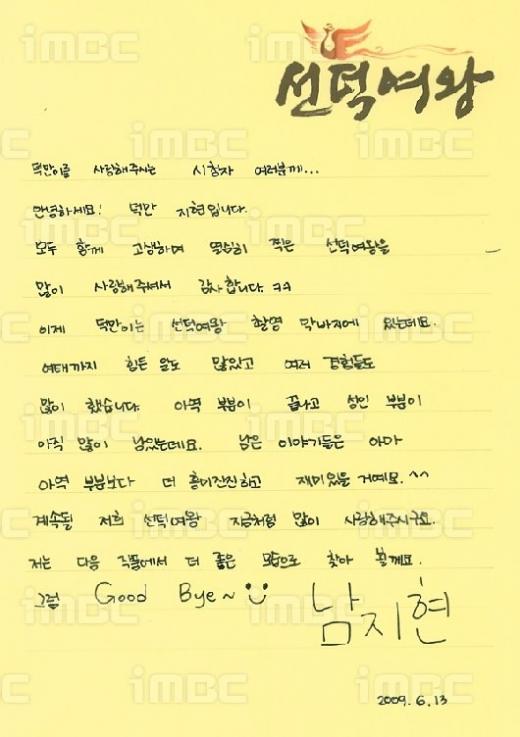 선덕여왕
덕만이를 사랑해주시는 시청자 여러분께...
안녕하세요! 덕만 지현입니다.
모두 함께 고생하며 열심히 찍은 선덕여왕을
많이 사랑해주셔서 감사합니다. ㅋㅋ
이제 덕만이는 선덕여왕 촬영 막바지에 있는데요.
여태까지 힘든 일도 많았고 여러 경험들도
많이 했습니다. 아역 부분이 끝나고 성인 부분이
아직 많이 남았는데요. 남은 이야기들은 아마
아역 부분보다 더 흥미진진하고 재미있을 거예요. ^^
계속될 저희 선덕여왕 지금처럼 많이 사랑해주시구요.
저는 다음 작품에서 더 좋은 모습으로 찾아 뵐께요.
그럼 Good Bye~
남지현
2009. 6. 13
iMBC